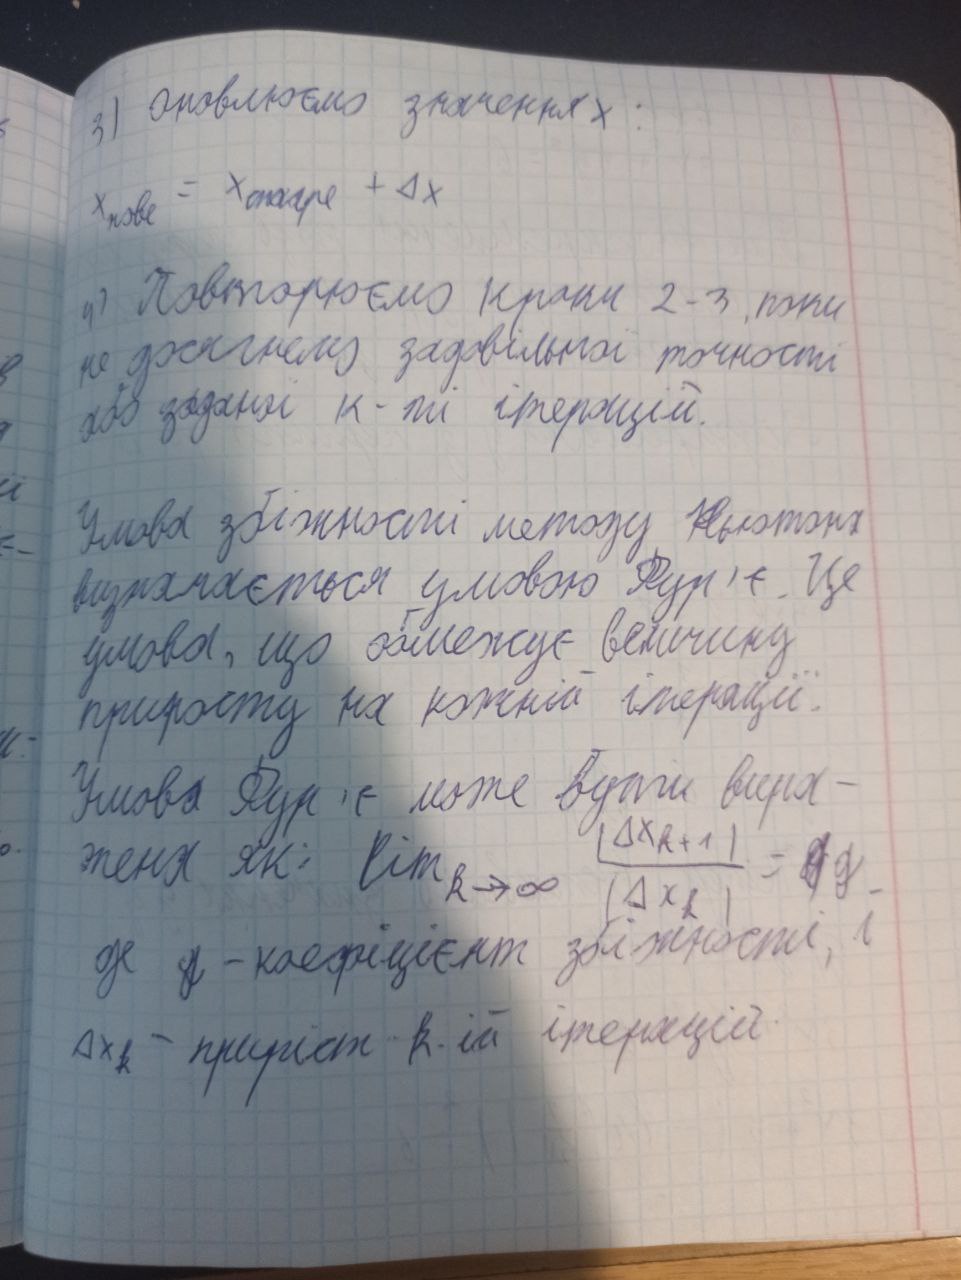 3) Оновлюємо значення x:
x нове = x старе + Δx
4) Повторюємо кроки 2-3, поки
не досягнемо задовільної точності
або заданої к-ті ітерацій.
Умова збіжності методу Ньютона
визначається умовою Фур'є. Це
умова, що обмежує величину
приросту на кожній ітерації.
Умова Фур'є може бути вира-
жена як: lim k→∞ |Δx k+1| / |Δx k| = q
де q - коефіцієнт збіжності, і
Δx k - приріст k-ій ітерацій.